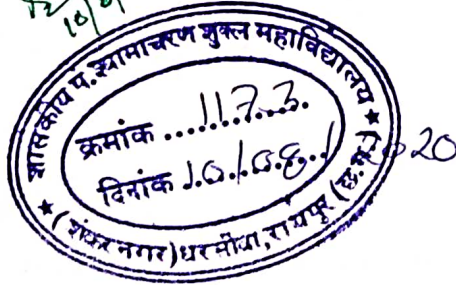 10/0
शासकीय पं. श्यामाचरण शुक्ल महाविद्यालय
क्रमांक ...1173.
दिनांक 10/08/2020
★ (शंकर नगर) धरसींवा, रायपुर (छ.ग.) ★